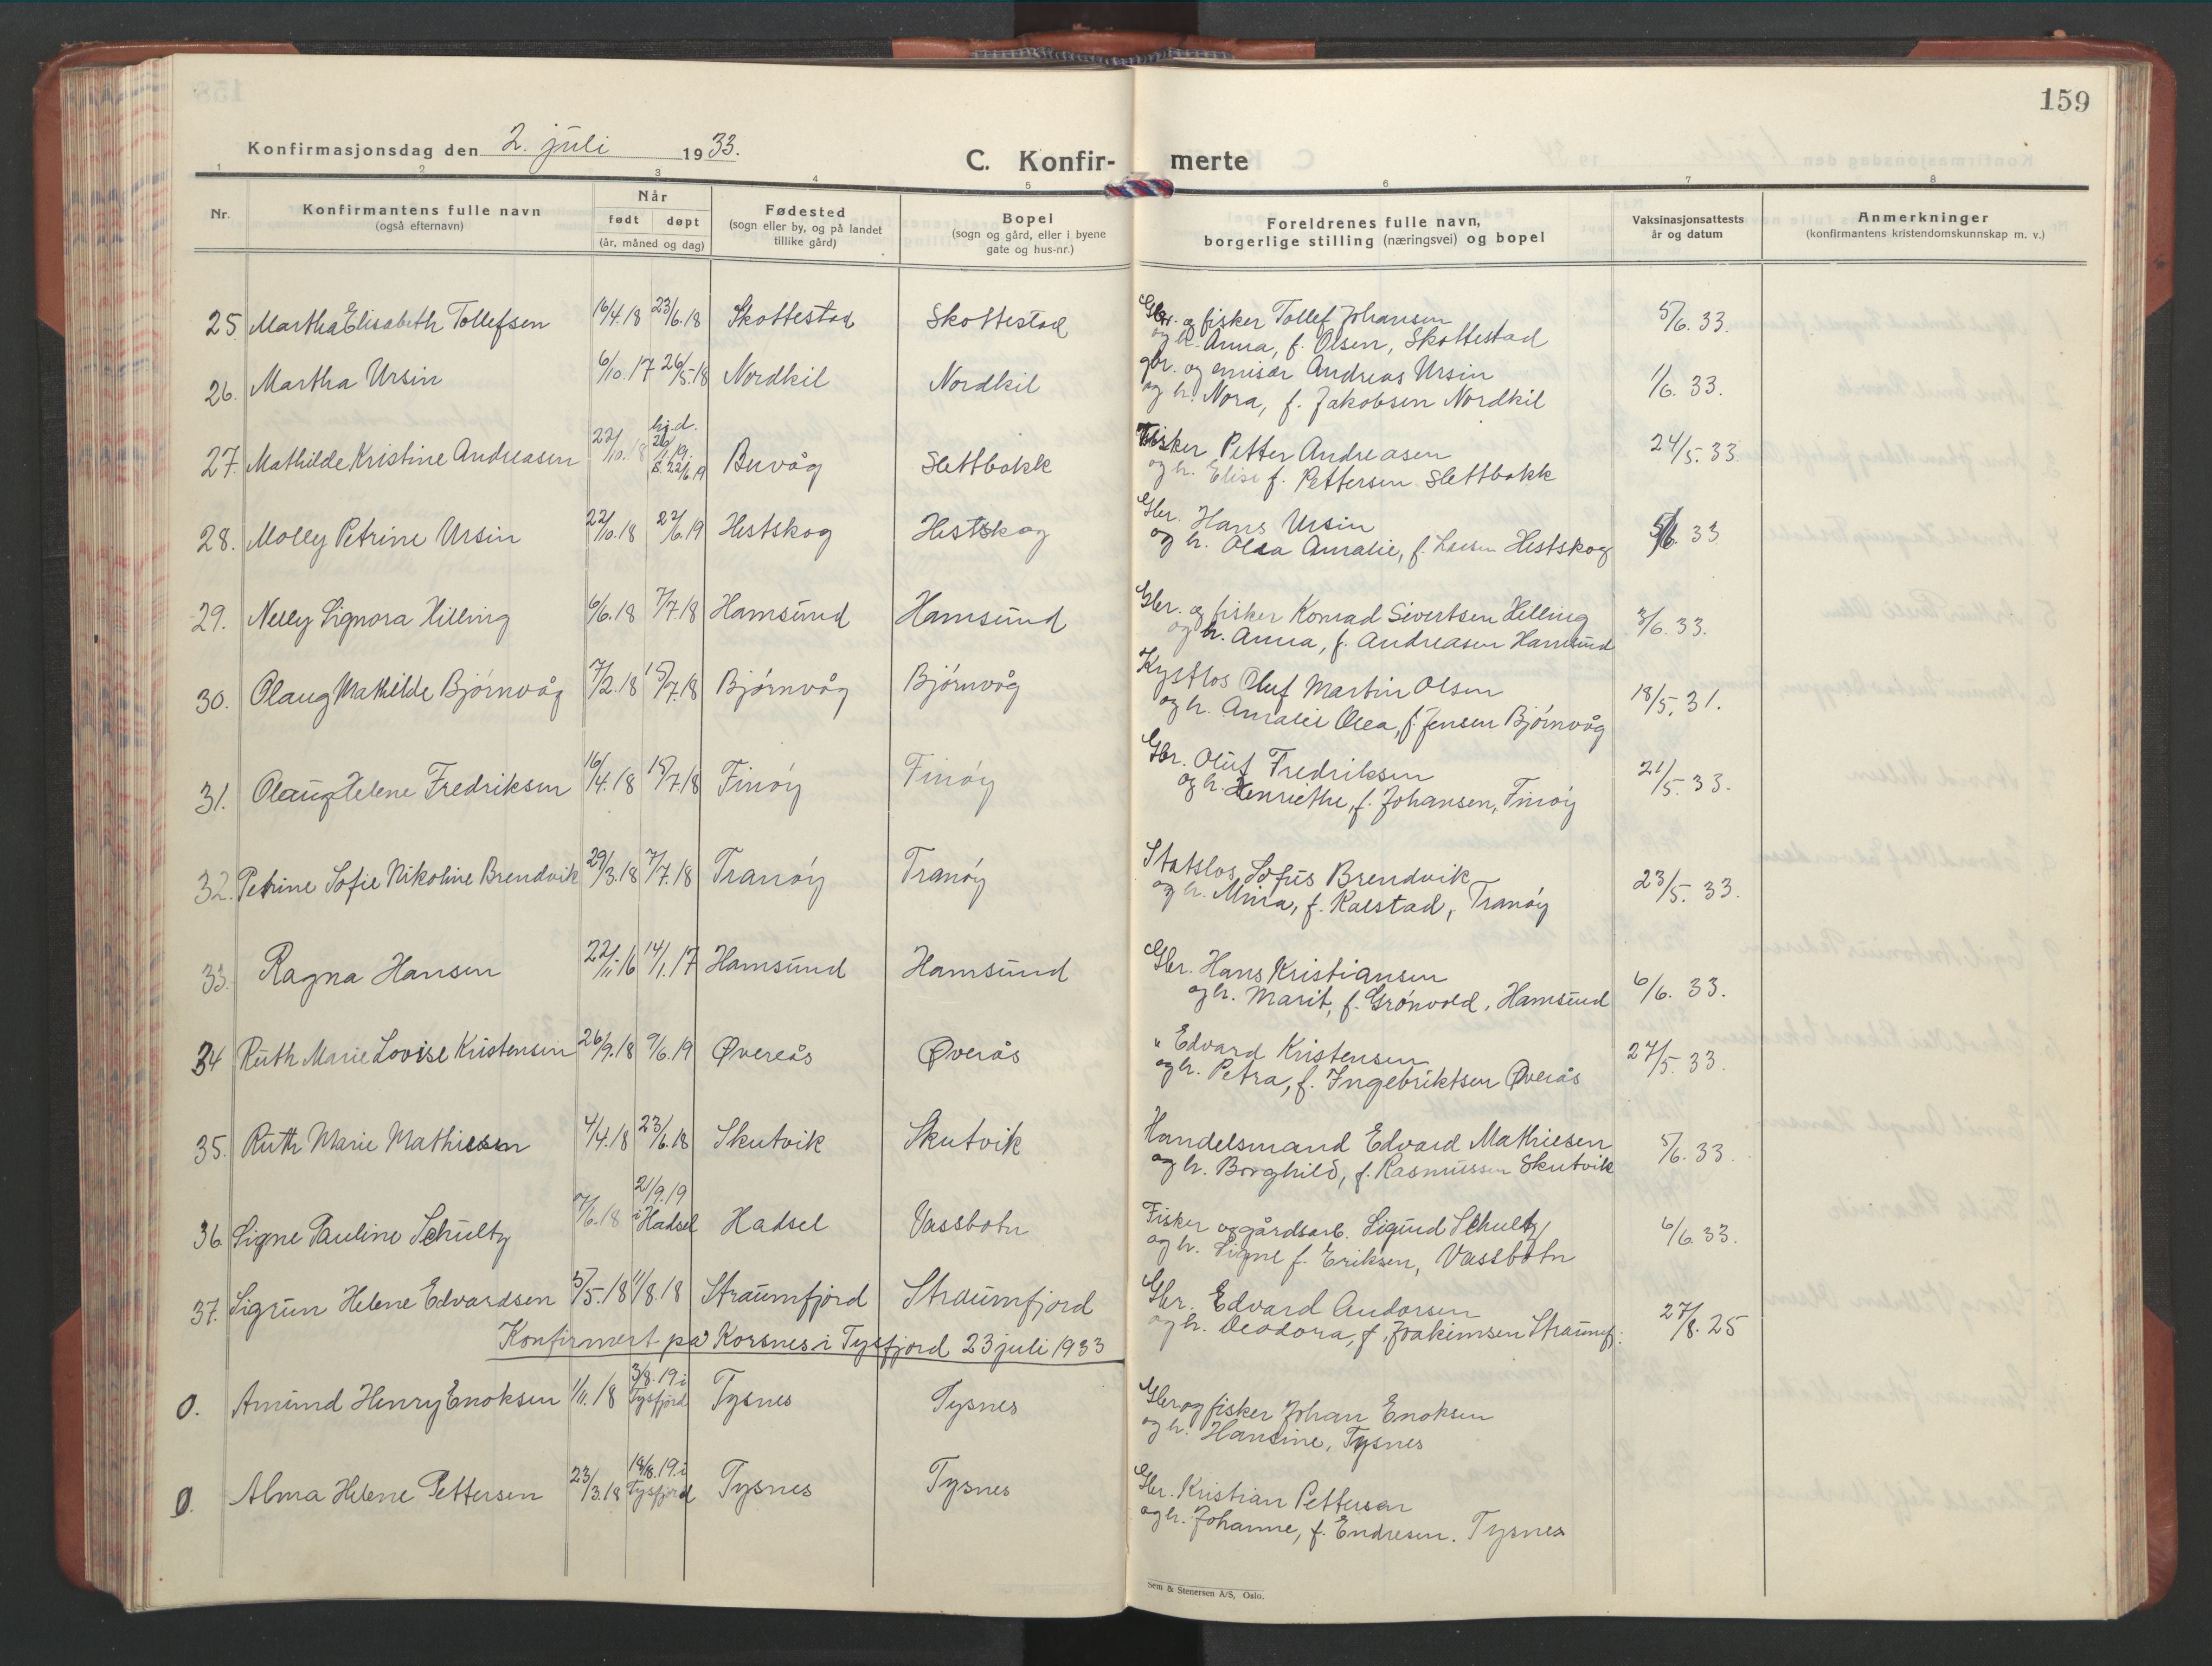 159
Konfirmasjonsdag den 2. juli 1933.
C. Konfir- merte
1 2 3 4 5 6 7 8
Nr.
Konfirmantens fulle navn
(også efternavn)
Når
født døpt
(år, måned og dag)
Fødested
(sogn eller by, og på landet
tillike gård)
Bopel
(sogn og gård, eller i byene
gate og hus-nr.)
Foreldrenes fulle navn,
borgerlige stilling (næringsvei) og bopel
Vaksinasjonsattests
år og datum
Anmerkninger
(konfirmantens kristendomskunnskap m. v.)
25 Martha Elisabeth Tollefsen 16/4.18 23/6.18 Skottestad Skottestad Gbr. og fisker Tollef Johansen 5/6.33.
og h. Anna, f. Olsen, Skottestad
26. Martha Ursin 6/10.17 26/5.18 Nordkil Nordkil gbr. og emisær Andreas Ursin 1/6.33.
og h. Nora, f. Jakobsen Nordkil
hj.d.
27. Mathilde Kristine Andreasen 22/10.18 26/1.19. Buvåg Slettbakk Fisker Petter Andreasen 24/5.33.
22/6.19 og h. Elise f. Pettersen Slettbakk
28. Molly Petrine Ursin 22/10.18 22/6.19 Hestskog Hestskog Gbr. Hans Ursin 5/6.33
og h. Olea Amalie, f. Hestskog
29. Nelly Signora Hilling 6/6.18 7/7.18 Hamsund Hamsund Gbr. og fisker Konrad Sivertsen Hilling 3/6.33.
og h. Anna, f. Andreasen Hamsund
30. Olaug Mathilde Bjørnvåg 7/2.18 15/7.18 Bjørnvåg Bjørnvåg Kystlos Oluf Martin Olsen 18/5.31.
og h. Amalie Olea, f. Jensen Bjørnvåg
31. Olaug Helene Fredriksen 16/4.18 15/7.18 Finøy Finøy Gbr. Oluf Fredriksen 21/5.33.
og h. Henriethe, f. Johansen, Finøy
32. Petrine Sofie Nikoline Brendvik 29/3.18 7/7.18 Tranøy Tranøy Statslos Sofus Brendvik 23/5.33.
og h. Mina, f. Kalstad, Tranøy
33. Ragna Hansen 22/11.16 14/1.17 Hamsund Hamsund Gbr. Hans Kristiansen 6/6.33.
og h. Marit, f. Grønvold, Hamsund
34 Ruth Marie Lovise Kristensen 26/9.18 9/6.19 Øvereås Øverås " Edvard Kristensen 27/5.33.
og h. Petra, f. Ingebriktsen Øverås
35. Ruth Marie Mathiesen 4/4.18 23/6.18 Skutvik Skutvik Handelsmand Edvard Mathiesen 5/6.33.
og h. Borghild, f. Rasmussen Skutvik
36. Signe Pauline Schultz 7/6.18 21/9.19 i Hadsel Hadsel Vassbotn Fisker og gårdsarb. Sigurd Schultz 6/6.33.
og h. Signe f. Eriksen, Vassbotn
37. Sigrun Helene Edvardsen 5/5.18 11/8.18 Straumfjord Straumfjord Gbr. Edvard Andorsen 27/8.25
og h. Deodora, f. Joakimsen Straumfj.
Konfirmert på Korsnes i Tysfjord 23 juli 1933
0. Amund Henry Enoksen 1/11.18 3/8.19 i Tysfjord Tysnes Tysnes Gbr og fisker Johan Enoksen
og h. Hansine, Tysnes
0. Alma Helene Pettersen 23/3.18 18/8.19 i Tysfjord Tysnes Tysnes Gbr. Kristian Pettersen
og h. Johanne, f. Endresen. Tysnes
Sem & Stenersen A/S, Oslo.